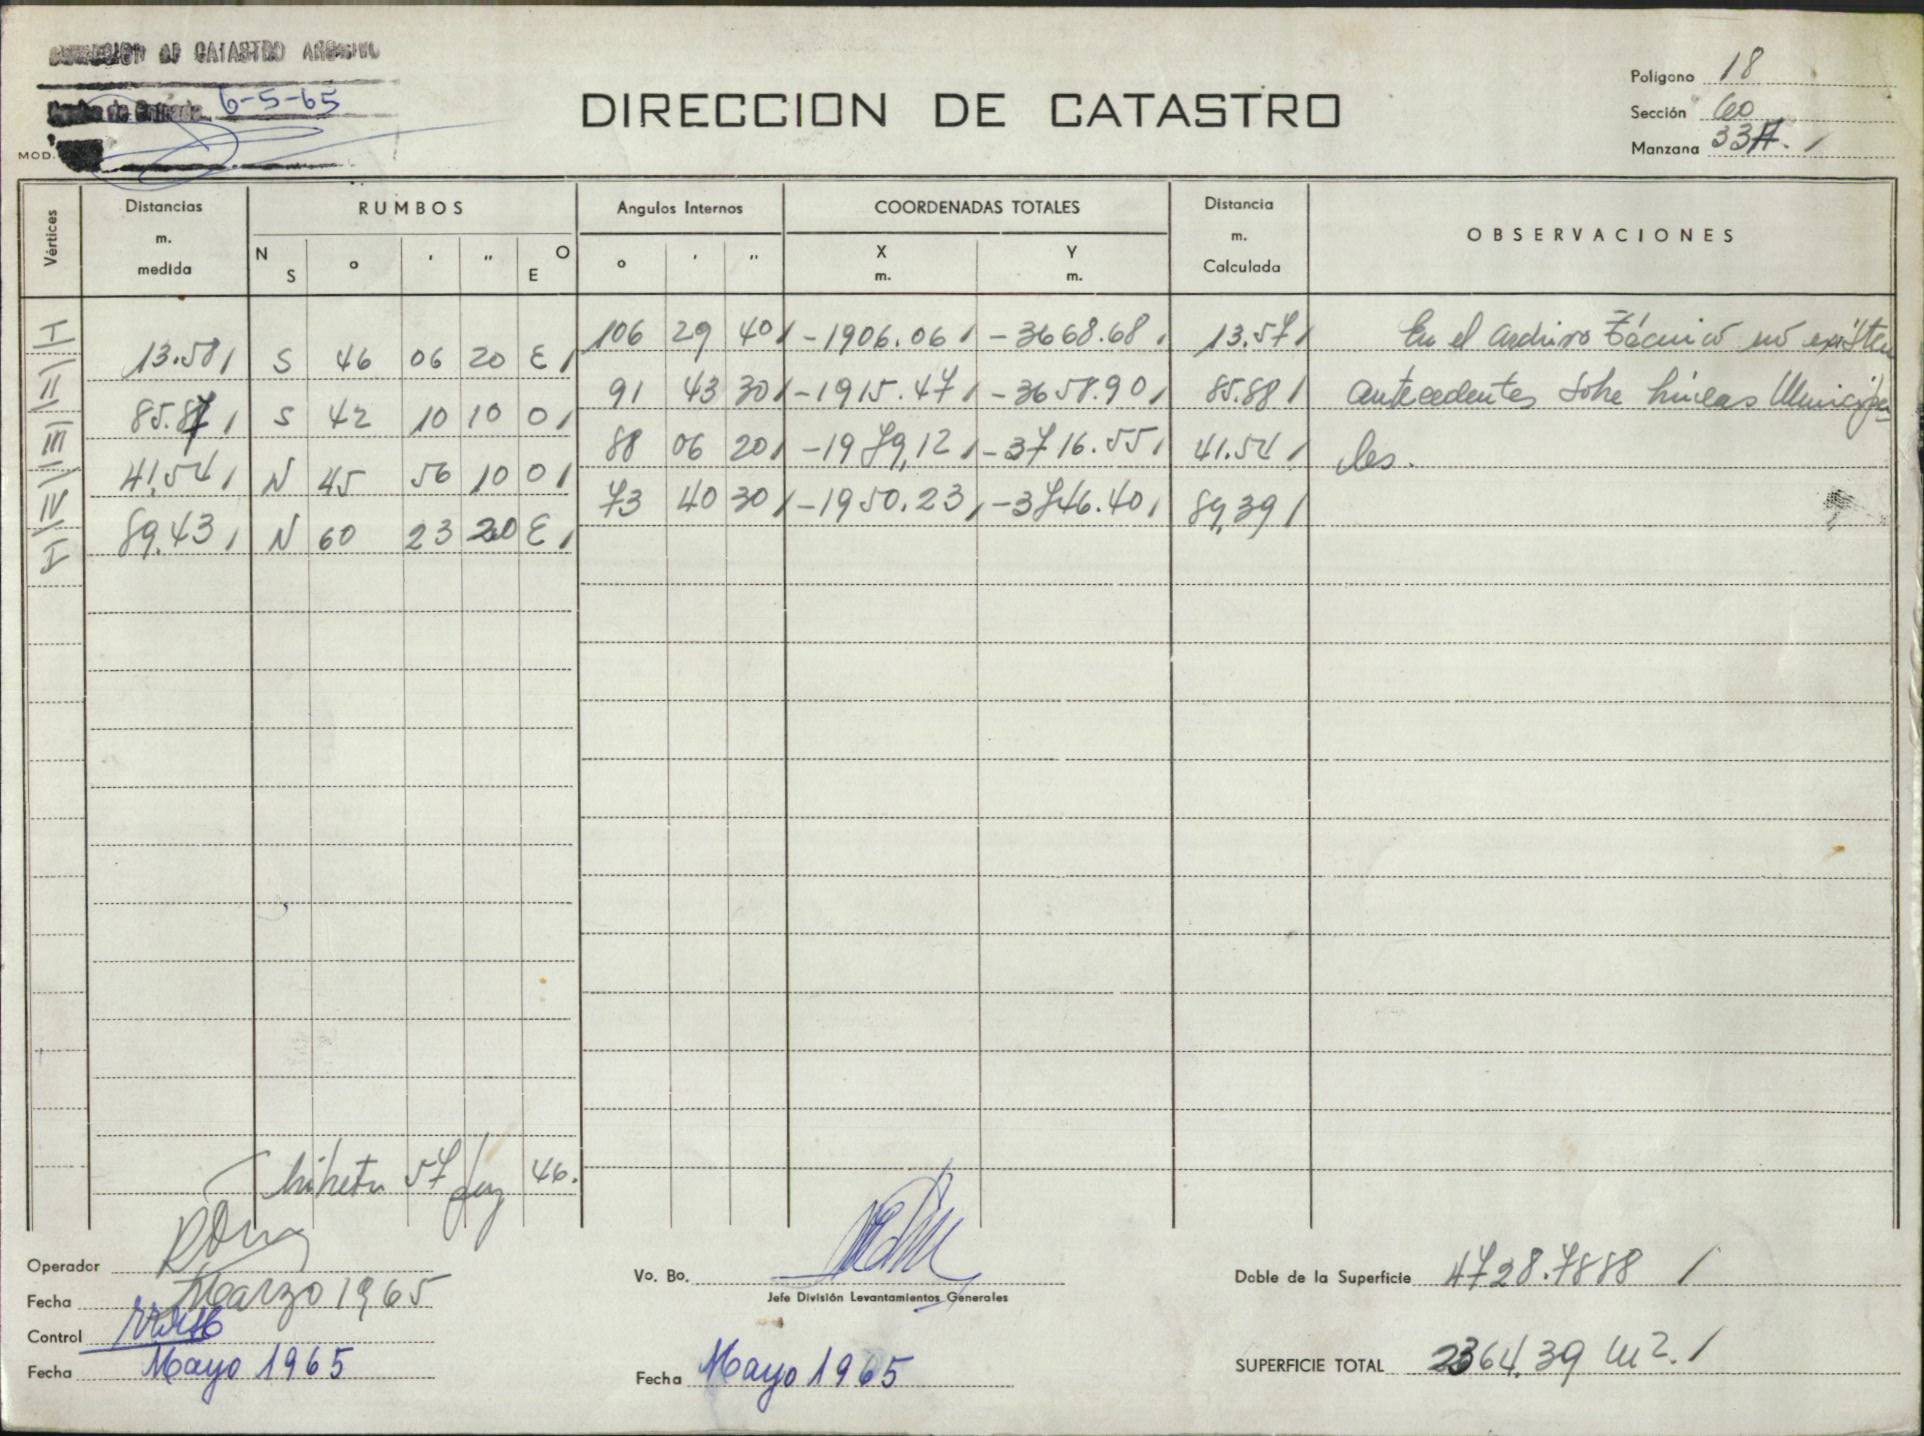 DIRECCION DE CATASTRO ARCHIVO
6-5-65
MOD.
DIRECCION DE CATASTRO
Polígono 18
Sección 60
Manzana 33A.
Vértices Distancias m. medida RUMBOS Angulos Internos COORDENADAS TOTALES Distancia m. Calculada OBSERVACIONES
N S ° ' " O E ° ' " X m. Y m.
I 106 29 40 -1906.06 -3668.68 13.57 En el archivo Técnico no existen
13.58 S 46 06 20 E
II 91 43 30 -1915.47 -3658.90 85.88 antecedentes sobre líneas Municipa
85.87 S 42 10 10 O
III 88 06 20 -1979,12 -3716.55 41.54 les.
41.54 N 45 56 10 O
IV 73 40 30 -1950.23 -3746.40 89,39
89.43 N 60 23 20 E
I
libreta 57 pag 46.
Operador
Fecha Marzo 1965
Control
Fecha Mayo 1965
Vo. Bo.
Jefe División Levantamientos Generales
Fecha Mayo 1965
Doble de la Superficie 4728.7888
SUPERFICIE TOTAL 2364.39 m2.